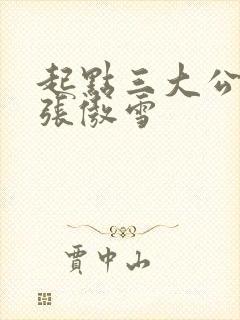 起點三大公
張傲雪
賈中山